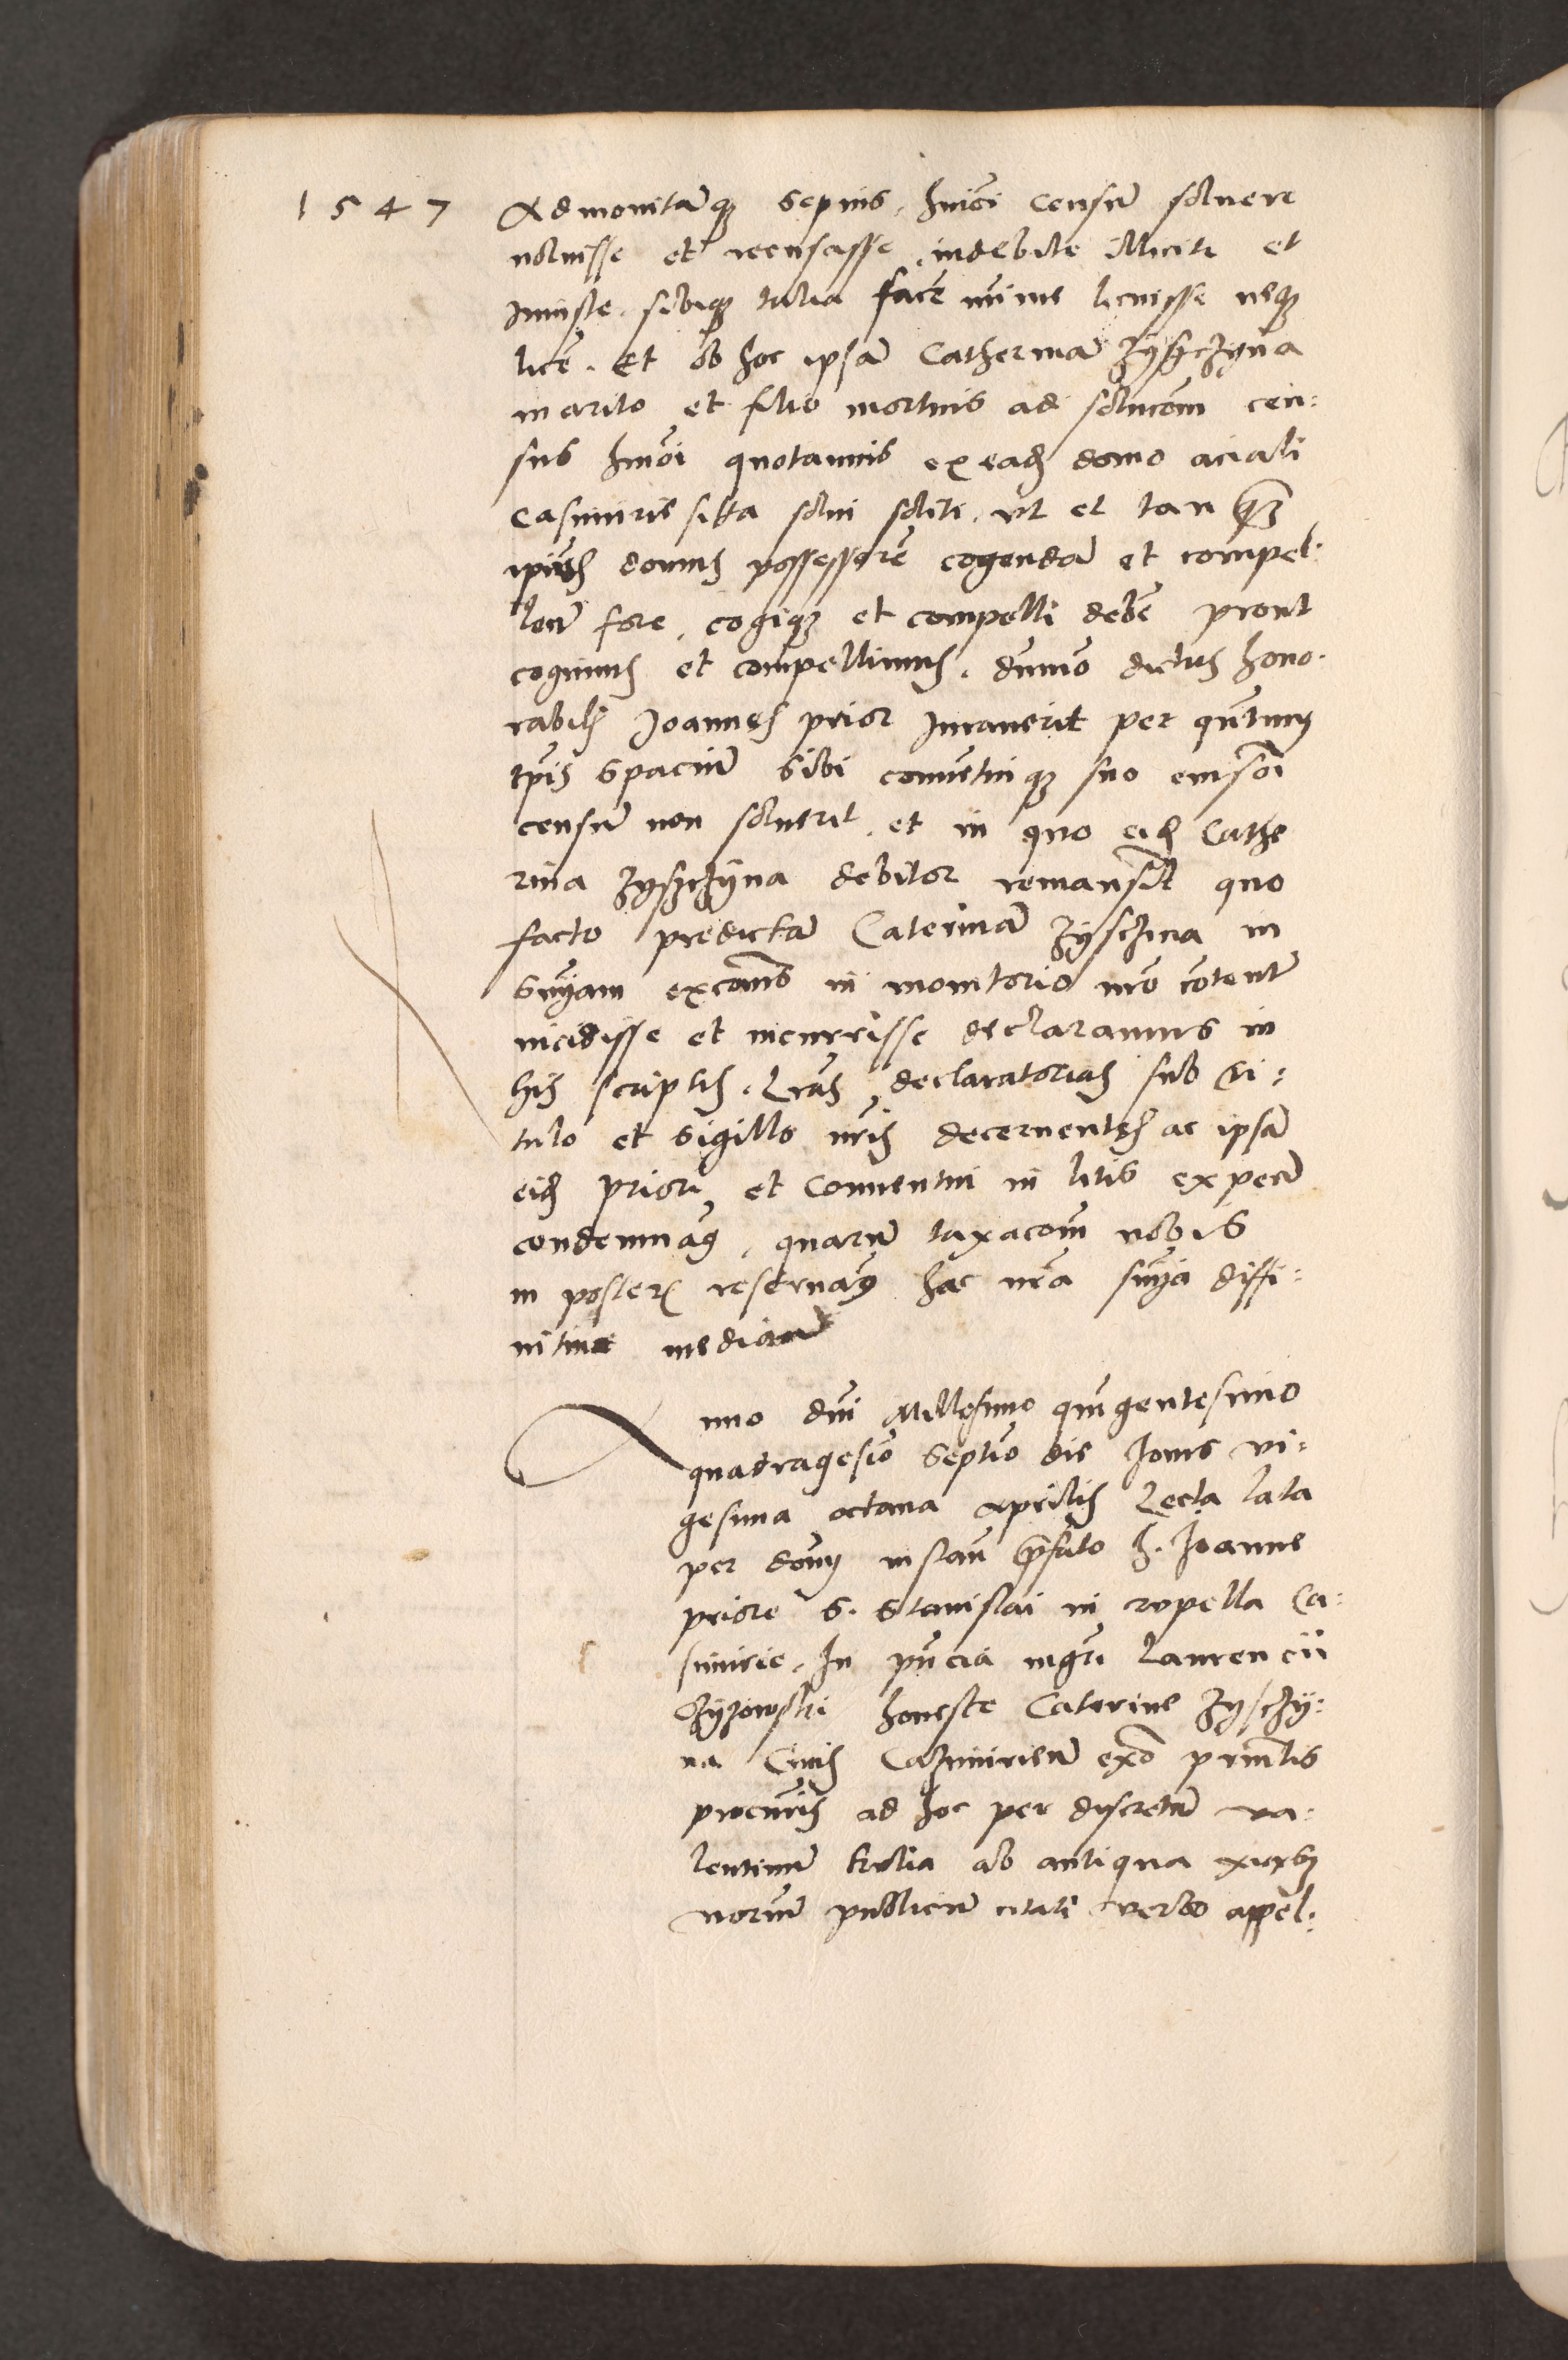 1547
Admonitaq3 sepius, hmoi censu soluere
noluisse et recusasse, indebite illicite et
Iniuste, sibiq3 talia face mime licuisse neq3
lice. Et ob hoc ipsa Catherina Zyschzyna
marito et filio mortuis ad solucom cen:
sus hmoi quotannis ex ead domo aciali
Casimirie sitta solui soliti, vt et tanq3
ipius domus possessore cogenda et compel.
lend fore, cogiq3 et compelli debe prout
cogimus et compellimus, dumo dictus hono.
rabilis Joannes prior Iurauerit per quntum
tpis spacium sibi conuentuiq3 suo eiusmoi
censu non soluerit, et in quo eid Cathe
rina Zyschzyna debitor remansit quo
facto predicta Caterina Zyschzina in
sniam excois in monitorio nro content
incidisse et incurrisse declaramus in
his scriptis. Lras declaratorias sub ti:
tulo et sigillo nris decernentes ac ipsa
eid priori et Conuentui in litis expens
condemnam9, quaru taxacom nobis
in poster reseruam9 hac nra snia diffi:
nitiua mediante
Anno dni Millesimo quingentesimo
quadragesio septio die Iouis vi:
gesima octaua Aprilis Lecta lata
per dom9 instan prefato h. Joanne
priore S. Stanislai in rupella Ca:
simirie, In pncia mgri Laurencii
Zyzowski honeste Caterine Zyschzy:
na Ciuis Casimirien exo principalis
procuris ad hoc per discretu Va:
lentinu Krolia ab antiqua
notariu publicu citati verbo appel.